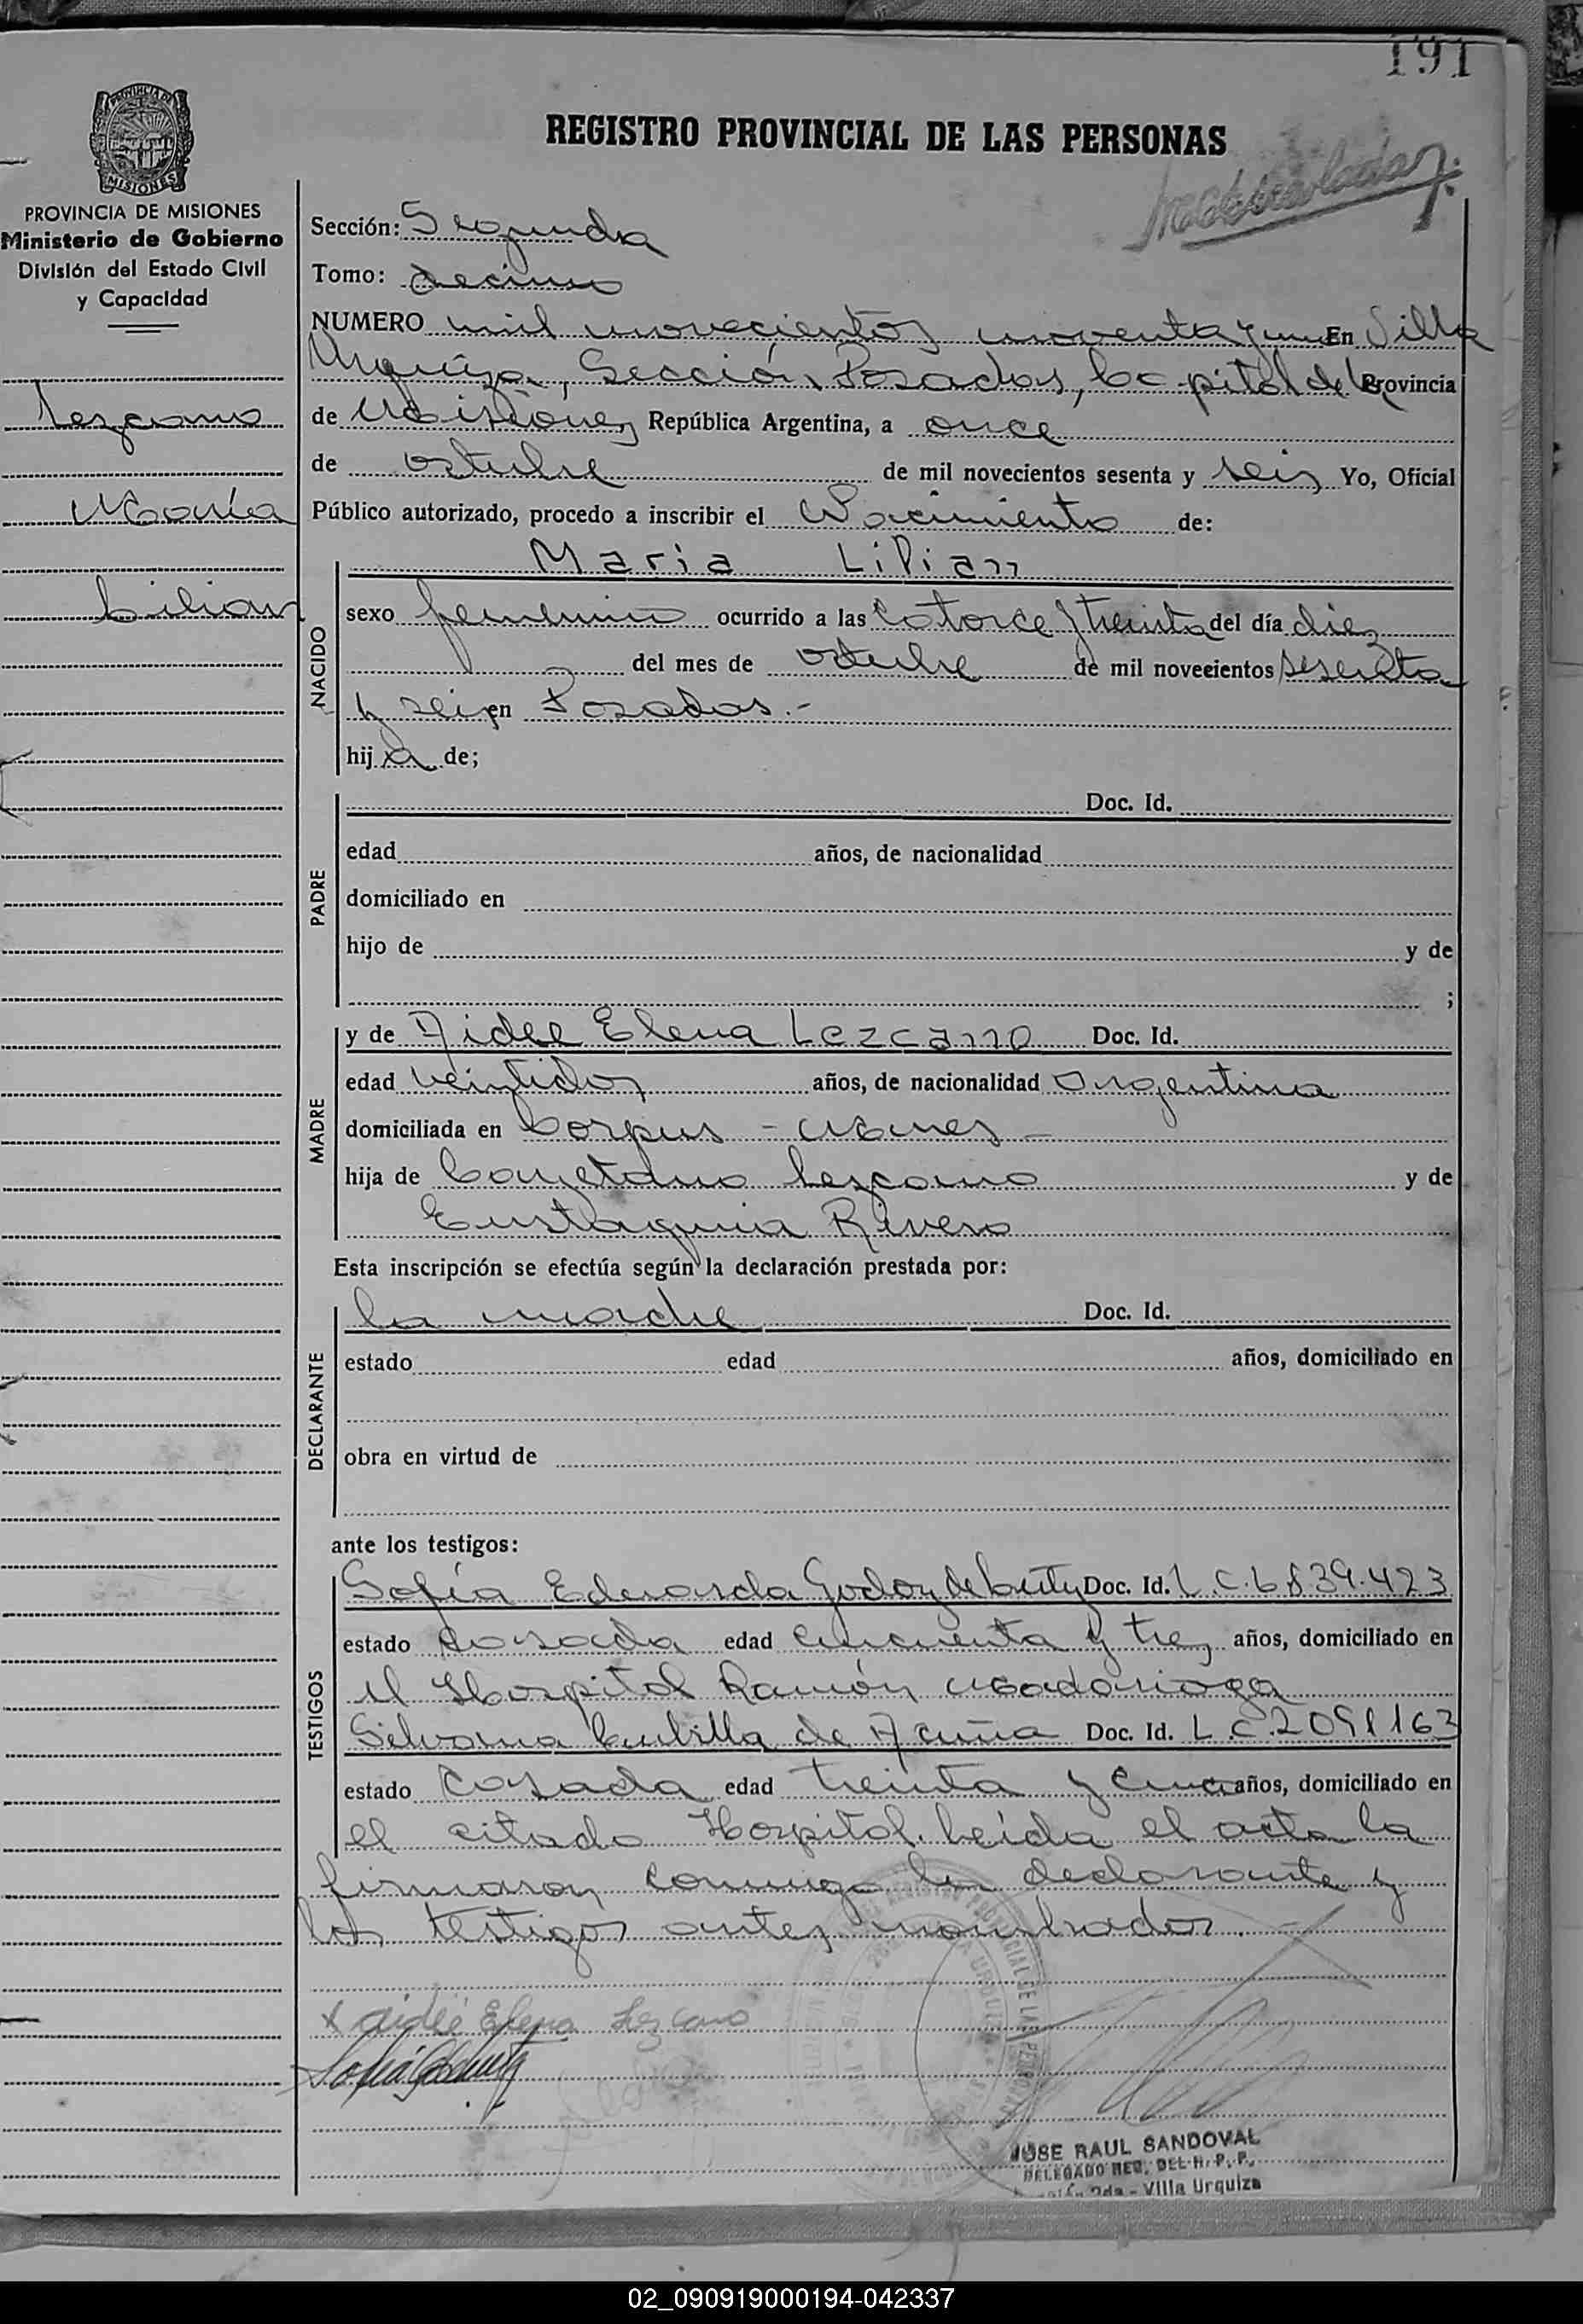 191
REGISTRO PROVINCIAL DE LAS PERSONAS
PROVINCIA DE MISIONES
MISIONES
PROVINCIA DE MISIONES
Ministerio de Gobierno
División del Estado Civil
y Capacidad
Lezcano
María
Lilian
Sección: Segunda
Tomo: decimo
NUMERO mil novecientos noventa y uno En Villa
Urquiza, Sección Posadas, Capital de la Provincia
de Misiones República Argentina, a once
de octubre de mil novecientos sesenta y seis Yo, Oficial
Público autorizado, procedo a inscribir el Nacimiento de:
NACIDO
Maria Lilian
sexo femenino ocurrido a las catorce y treinta del día diez
del mes de octubre de mil novecientos sesenta
y seis en Posadas.-
hija de;
PADRE
Doc. Id.
edad años, de nacionalidad
domiciliado en
hijo de y de
;
MADRE
y de Aidee Elena Lezcano Doc. Id.
edad veintidos años, de nacionalidad Argentina
domiciliada en Corpus - Mnes -
hija de Cayetano Lezcano y de
Eustaquia Rivero
Esta inscripción se efectúa según la declaración prestada por:
DECLARANTE
La madre Doc. Id.
estado edad años, domiciliado en
obra en virtud de
ante los testigos:
TESTIGOS
Sofía Eduarda Godoy de Doc. Id. L.C.6839.423
estado casada edad cincuenta y tres años, domiciliado en
el Hospital Ramón Madariaga
Silvana de Acuña Doc. Id. L.C.2091163
estado casada edad treinta y cinco años, domiciliado en
el citado Hospital. Leída el acta la
firmaron conmigo la declarante y
los testigos antes nombrados.-
x Aideé Elena Lezcano
JOSE RAUL SANDOVAL
DELEGADO REG. DEL R. P. P.
Sección 2da - Villa Urquiza
02_090919000194-042337